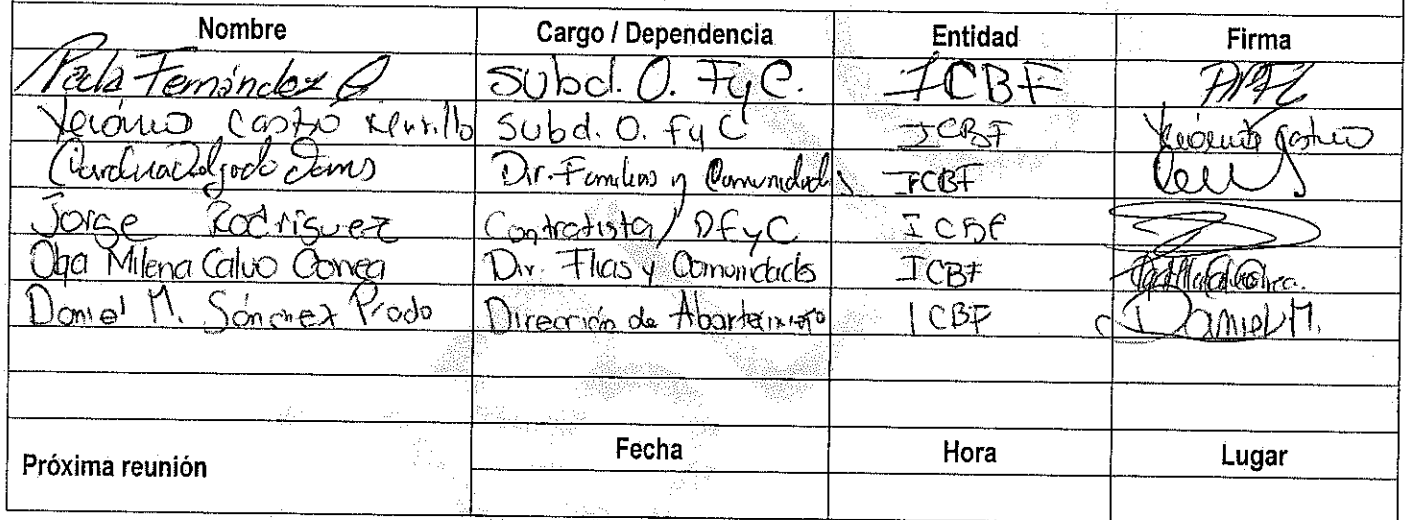 Nombre Cargo / Dependencia Entidad Firma
Paola Fernández G Subd. O. FyC. ICBF
Verónica Castro Murillo Subd. O. FyC ICBF Verónica Castro
Delgado Dir. Familias y Comunidades ICBF
Jorge Rodríguez Contratista / DFyC ICBF
Olga Milena Calvo Correa Dir. Flias y Comunidades ICBF
Daniel M. Sánchez Prado Dirección de Abastecimiento ICBF Daniel M.
Próxima reunión Fecha Hora Lugar